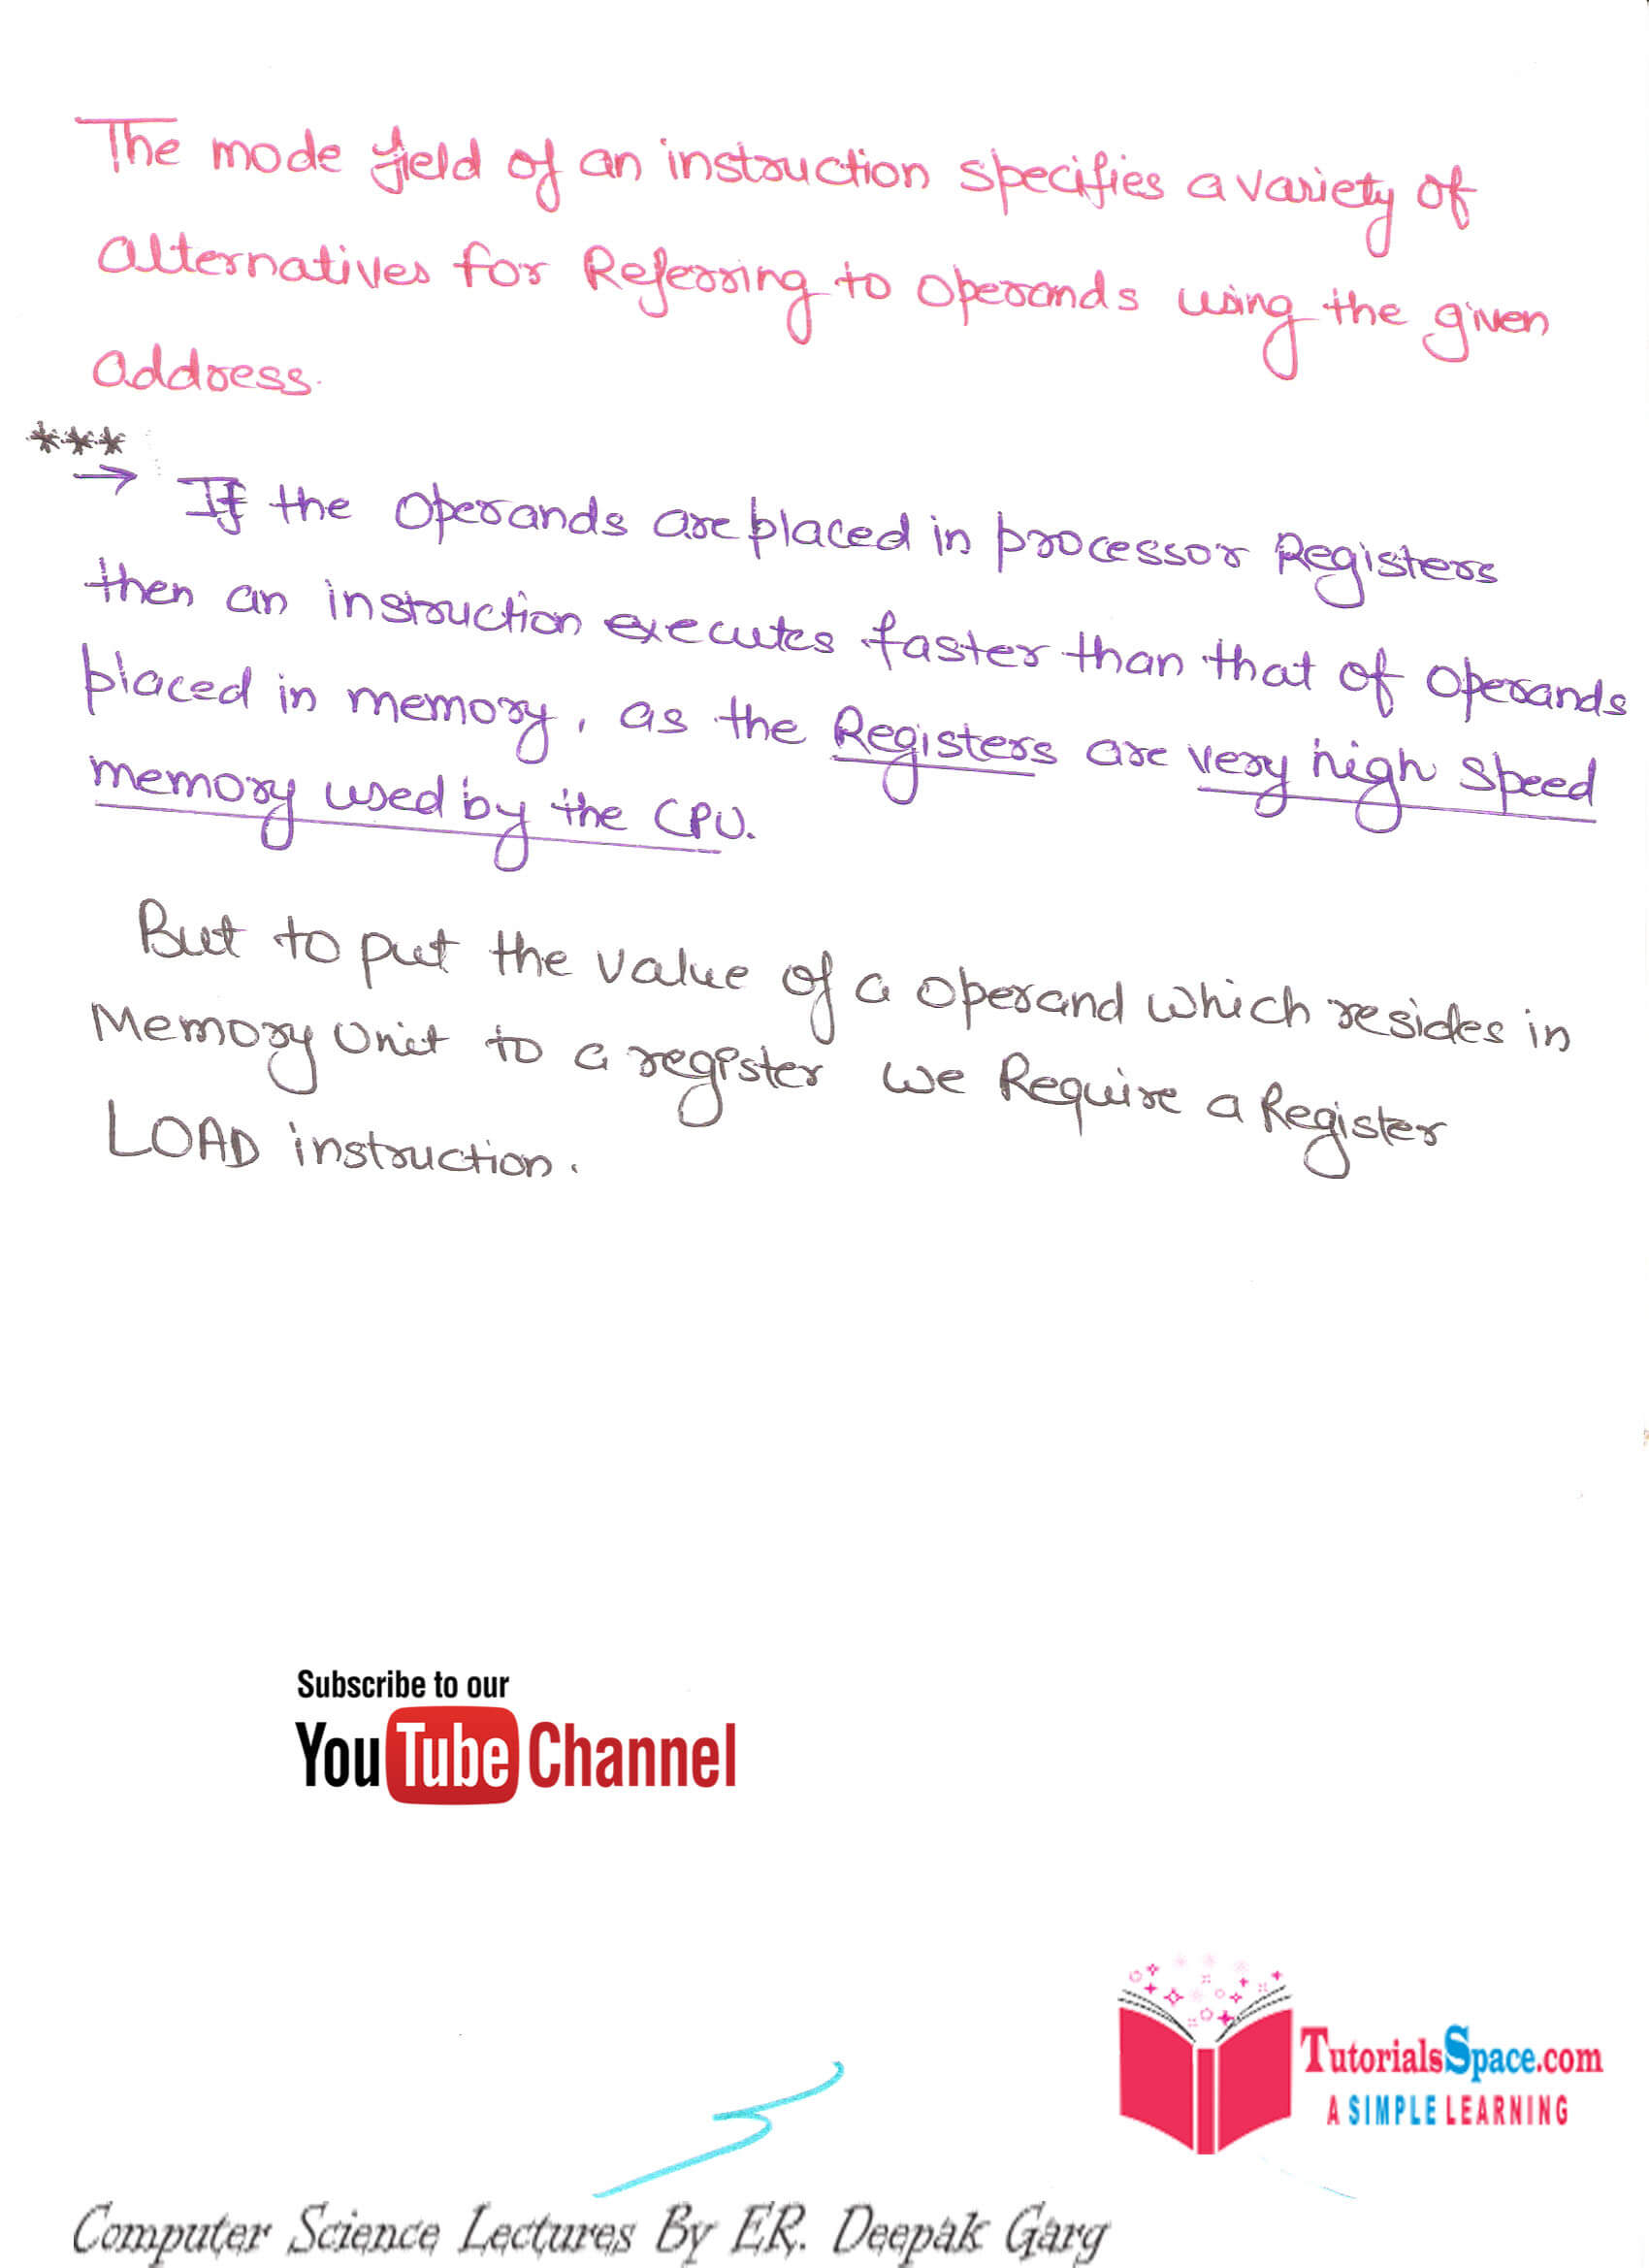 The mode field of an instruction specifies a variety of
alternatives for Referring to operands using the given
address.
***
→ If the operands are placed in processor Registers
then an instruction executes faster than that of operands
placed in memory, as the Registers are very high speed
memory used by the CPU.
But to put the value of a operand which resides in
Memory Unit to a register we Require a Register
LOAD instruction.
Subscribe to our
YouTube Channel
TutorialsSpace.com
A SIMPLE LEARNING
Computer Science Lectures By ER. Deepak Garg